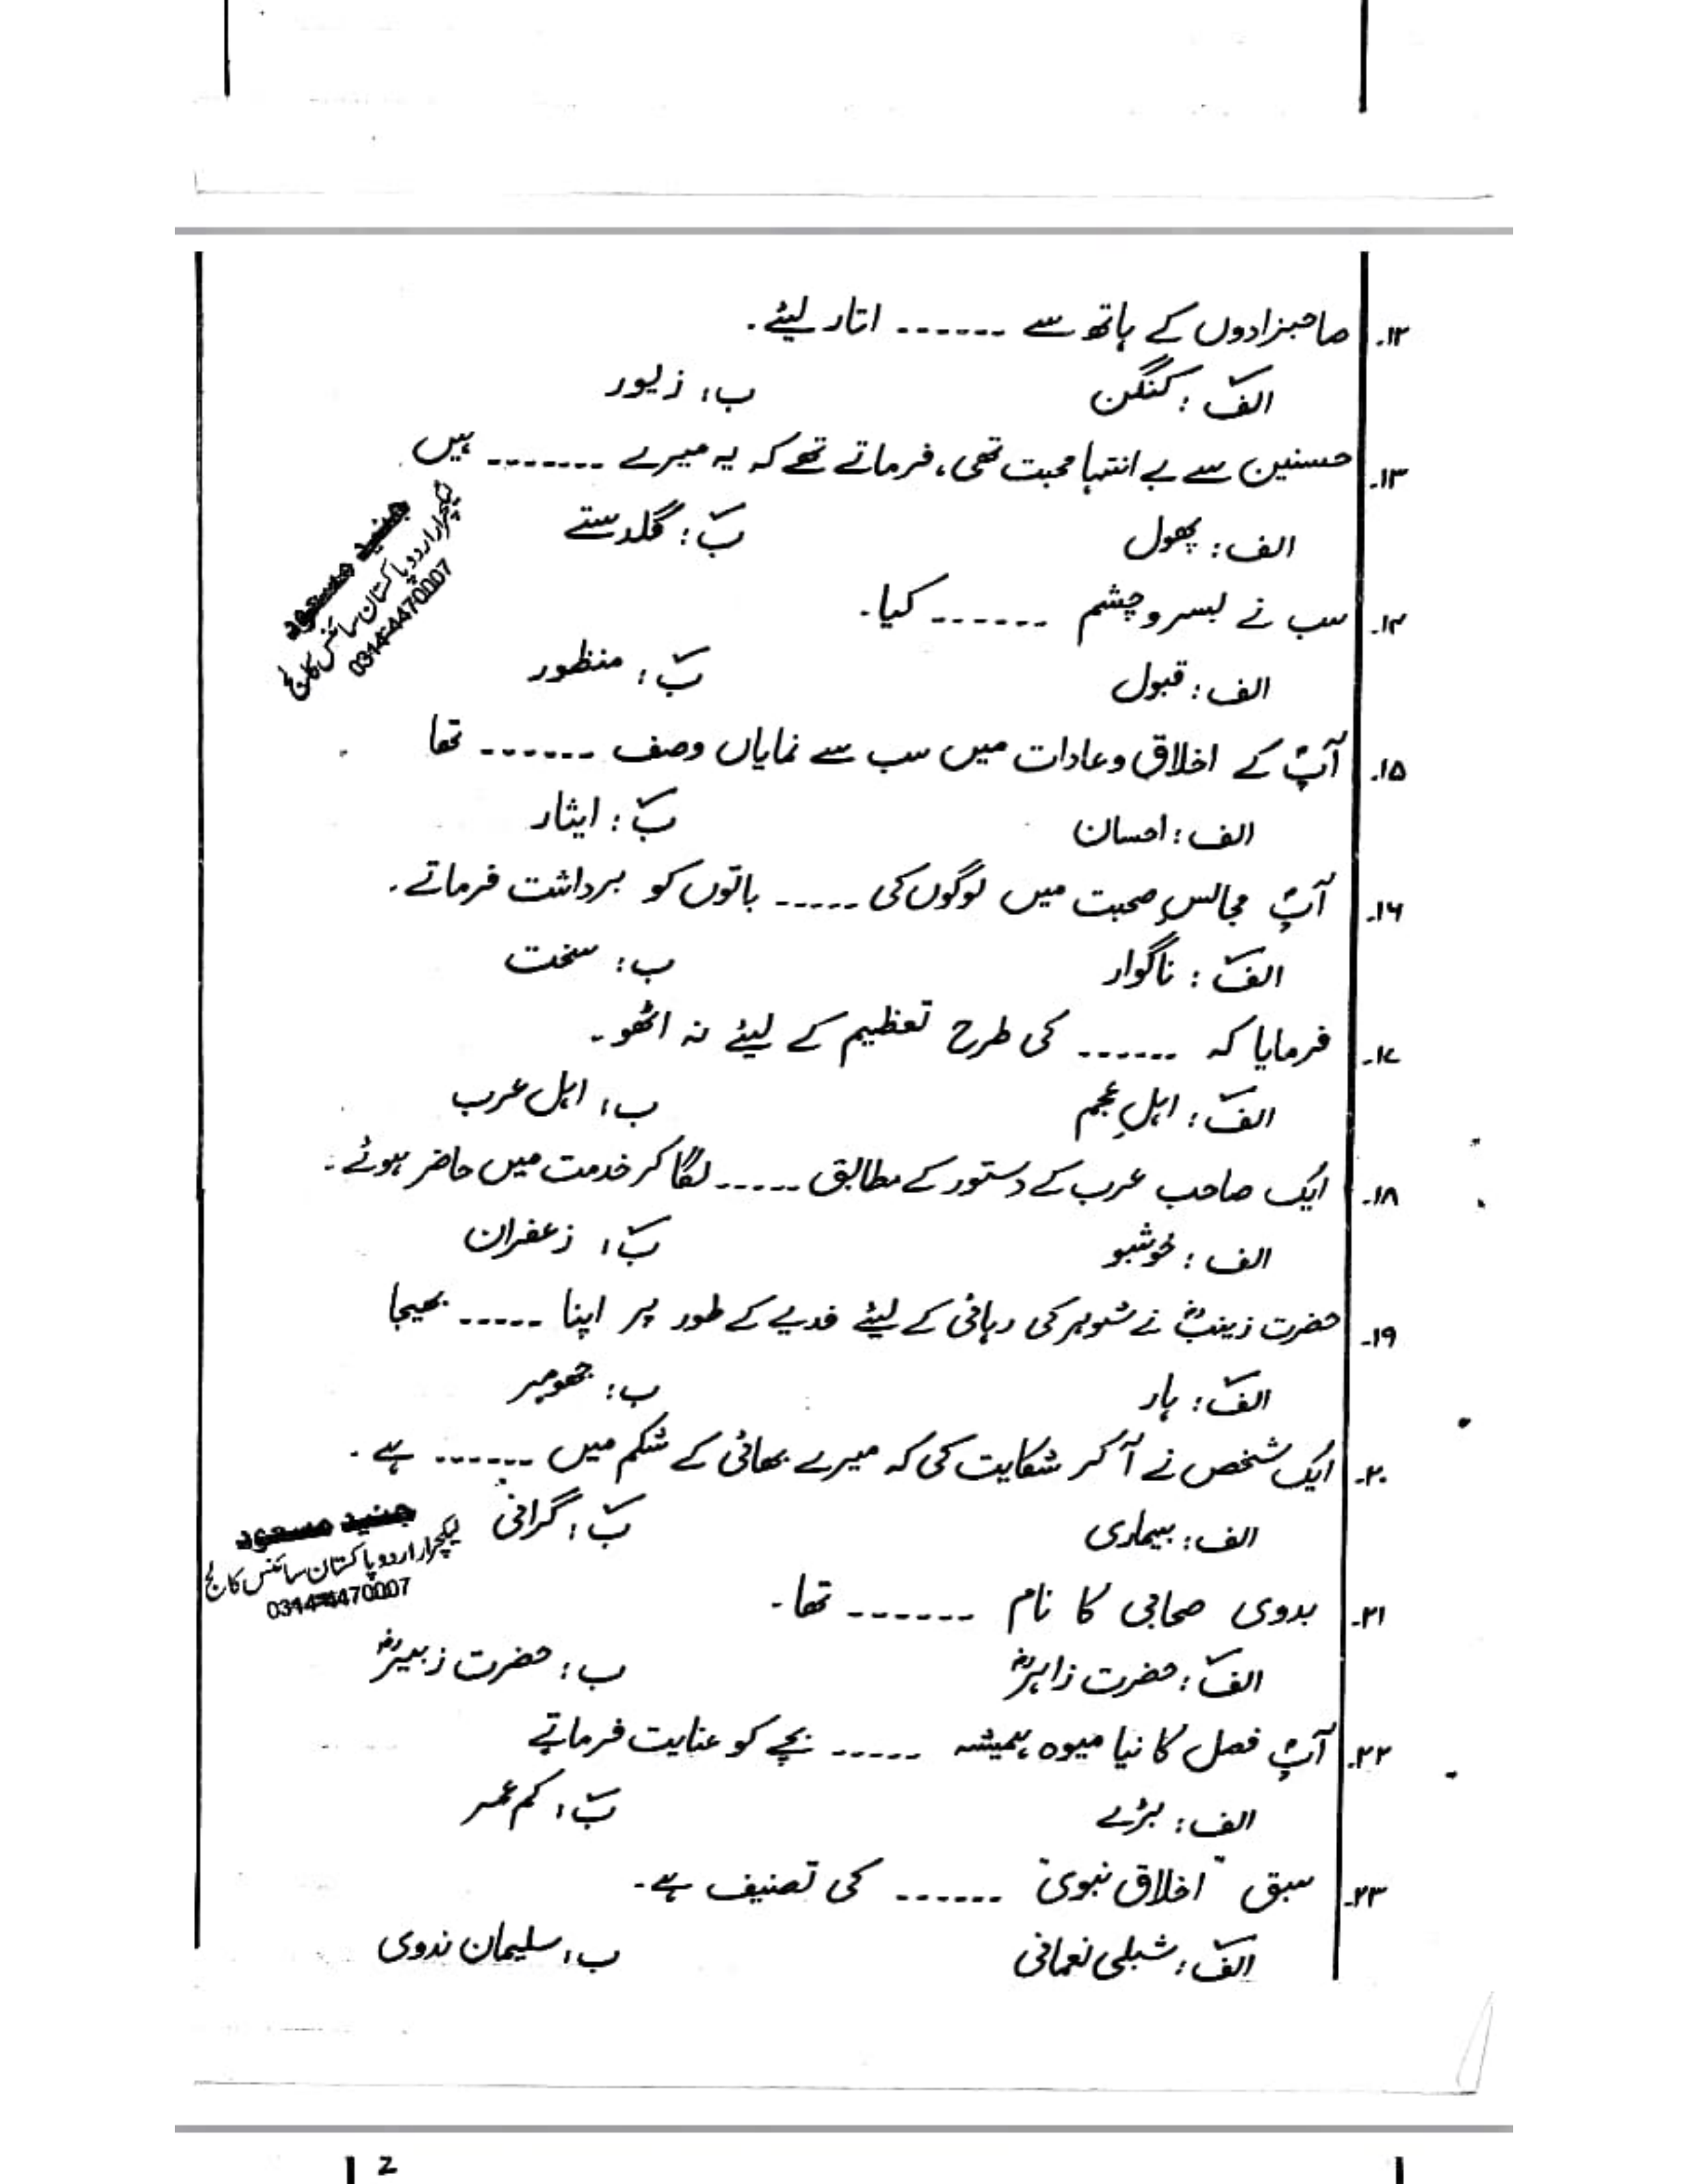 ۱۲۔ صاحبزادوں کے ہاتھ سے ------ اتار لیئے۔
الف: کنگن ب: زیور
۱۳۔ حسنین سے بے انتہا محبت تھی، فرماتے تھے کہ یہ میرے ------- ہیں
الف: پھول ب: گلدستے
۱۴۔ سب نے بسروچشم ------ کیا۔
الف: قبول ب: منظور
جنید مسعود
لیکچرار اردو پاکستان سائنس کالج
0314-4470007
۱۵۔ آپؐ کے اخلاق وعادات میں سب سے نمایاں وصف ------ تھا
الف: احسان ب: ایثار
۱۶۔ آپؐ مجالسِ صحبت میں لوگوں کی ----- باتوں کو برداشت فرماتے۔
الف: ناگوار ب: سخت
۱۷۔ فرمایا کہ ------ کی طرح تعظیم کے لیئے نہ اٹھو۔
الف: اہلِ عجم ب: اہل عرب
۱۸۔ ایک صاحب عرب کے دستور کے مطابق ----- لگا کر خدمت میں حاضر ہوئے۔
الف: خوشبو ب: زعفران
۱۹۔ حضرت زینبؓ نے شوہر کی رہائی کے لیئے فدیے کے طور پر اپنا ----- بھیجا
الف: ہار ب: جھومر
۲۰۔ ایک شخص نے آ کر شکایت کی کہ میرے بھائی کے شکم میں ------ ہے۔
الف: بیماری ب: گرانی
جنید مسعود
لیکچرار اردو پاکستان سائنس کالج
0314-4470007
۲۱۔ بدوی صحابی کا نام ------- تھا۔
الف: حضرت زاہرؓ ب: حضرت زبیرؓ
۲۲۔ آپؐ فصل کا نیا میوہ ہمیشہ ----- بچے کو عنایت فرماتے
الف: بڑے ب: کم عمر
۲۳۔ سبق "اخلاق نبوی" ------ کی تصنیف ہے۔
الف: شبلی نعمانی ب: سلیمان ندوی
2